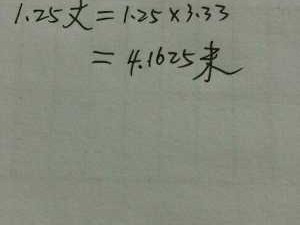 1.25丈=1.25×3.33
=4.1625米